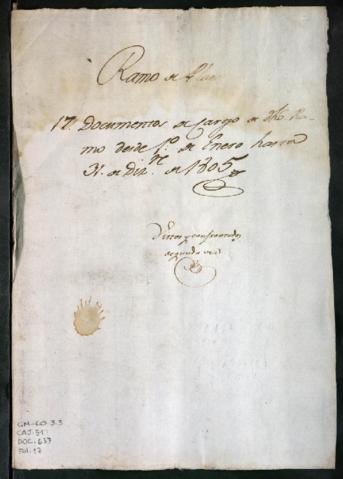 Ramo de
17. Documentos de Cargo de dho Ra-
mo desde 1º de Enero hasta
31. de Diz.re de 1805
Vistos y confrontados
segunda vez
GM-CO 3.3
CAJ. 51
DOC. 637
Fol. 17